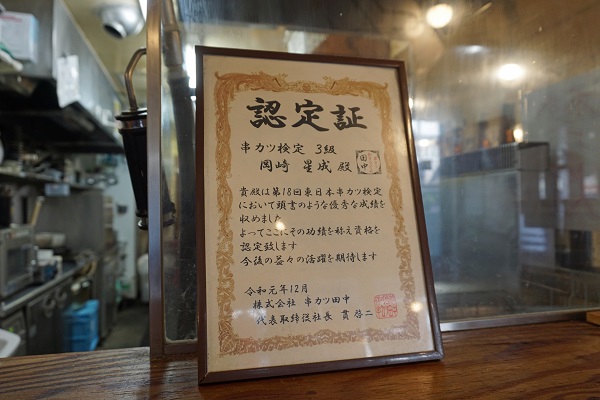 認定証
串カツ検定 3級
岡崎 星成 殿
田中
貴殿は第18回東日本串カツ検定
において頭書のような優秀な成績を
収めました
よってここにその功績を称え資格を
認定致します
今後の益々の活躍を期待します
令和元年12月
株式会社 串カツ田中
代表取締役社長 貫 啓二